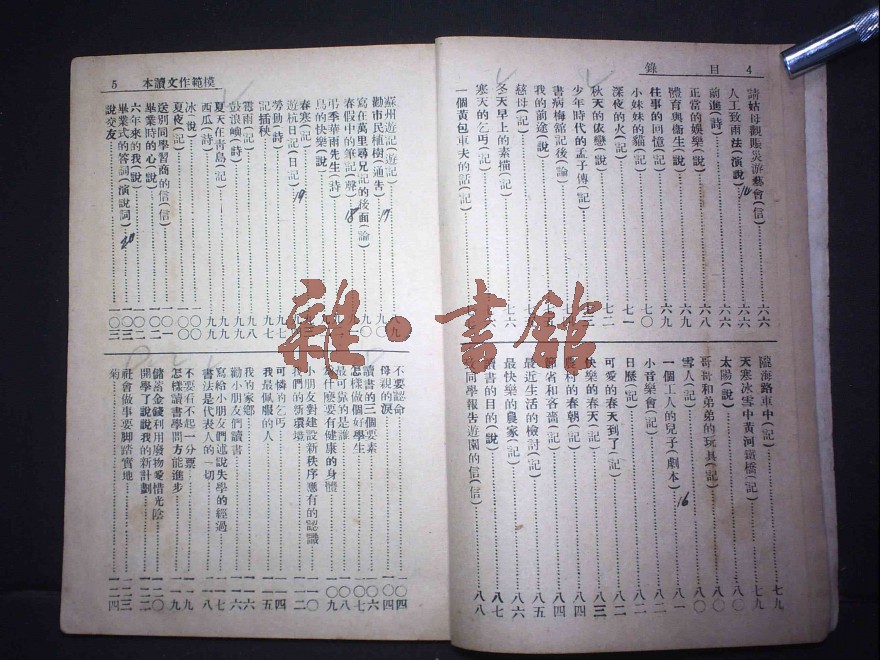 錄目 4
請姑母觀賑災游藝會(信)……六六
人工致雨法(演說)……六六
前進(詩)……六六
正當的娛樂(說)……六八
體育與衞生(說)……六九
往事的回憶(記)……六九
小妹妹的貓(記)……七〇
深夜的火(記)……七一
秋天的依戀(說)……七二
少年時代的孟子(傳)
書病梅館記後(論)
我的前途(說)
慈母(記)
冬天早上的素描(記)……七六
寒天的乞丐(記)
一個黃包車夫的話(記)
隴海路車中(記)……七九
天寒冰雪中黃河鐵橋(記)……七九
太陽(說)……八〇
哥哥和弟弟的玩具(記)……八〇
雪人(記)……八〇
一個工人的兒子(劇本)……八一
小音樂會(記)……八二
日歷(記)……八二
可愛的春天到了(記)……八二
快樂的春天(記)……八三
村的春朝(記)……八四
省和吝嗇(記)……八四
最近生活的檢討(記)……八五
最快樂的農家(記)……八六
讀書的目的(說)……八七
同學報告遊園的信(信)……八八
16
5 本讀文作範模
蘇州遊記(遊記)
勸市民植樹(通告)……九〇
17
寫在萬里尋兄記的後面(論)
春假中的筆記(聲)
18
弔季華雨先生(詩)
鳥的快樂(說)
春寒(記)
19
遊杭日記(日記)
勞動(詩)
記插秧……九七
雷雨(記)……九八
鼓浪嶼(詩)……九九
夏天在青島(記)……九九
西瓜(詩)……九九
冰(說)……一〇〇
夏夜(記)……一〇〇
送別同學習商的信(信)……一〇一
畢業時的心(說)……一〇二
六年來的我(說)
畢業式的答詞(演說詞)
20
說交友……一〇三
不要認命……一〇四
母親的淚……一〇四
讀書的三個要素……一〇六
怎樣做個好學生……一〇七
最可靠的是誰……一〇八
什麽要有健康的身體……一〇九
小朋友對建設新秩序應有的認識……一一〇
我們的新環境
可憐的乞丐……一一四
我最佩服的人……一一五
我的家鄉……一一六
勸小朋友們讀書……一一六
寫給小朋友們述說失學的經過……一一七
書法是代表人的一切……一一八
不要看不起一分票……一一九
怎樣讀書學問方能進步……一一九
儲蓄金錢利用廢物愛惜光陰……一二〇
開學了說說我的新計劃……一二二
社會做事要脚踏實地……一二三
菊……一二四
雜·書館